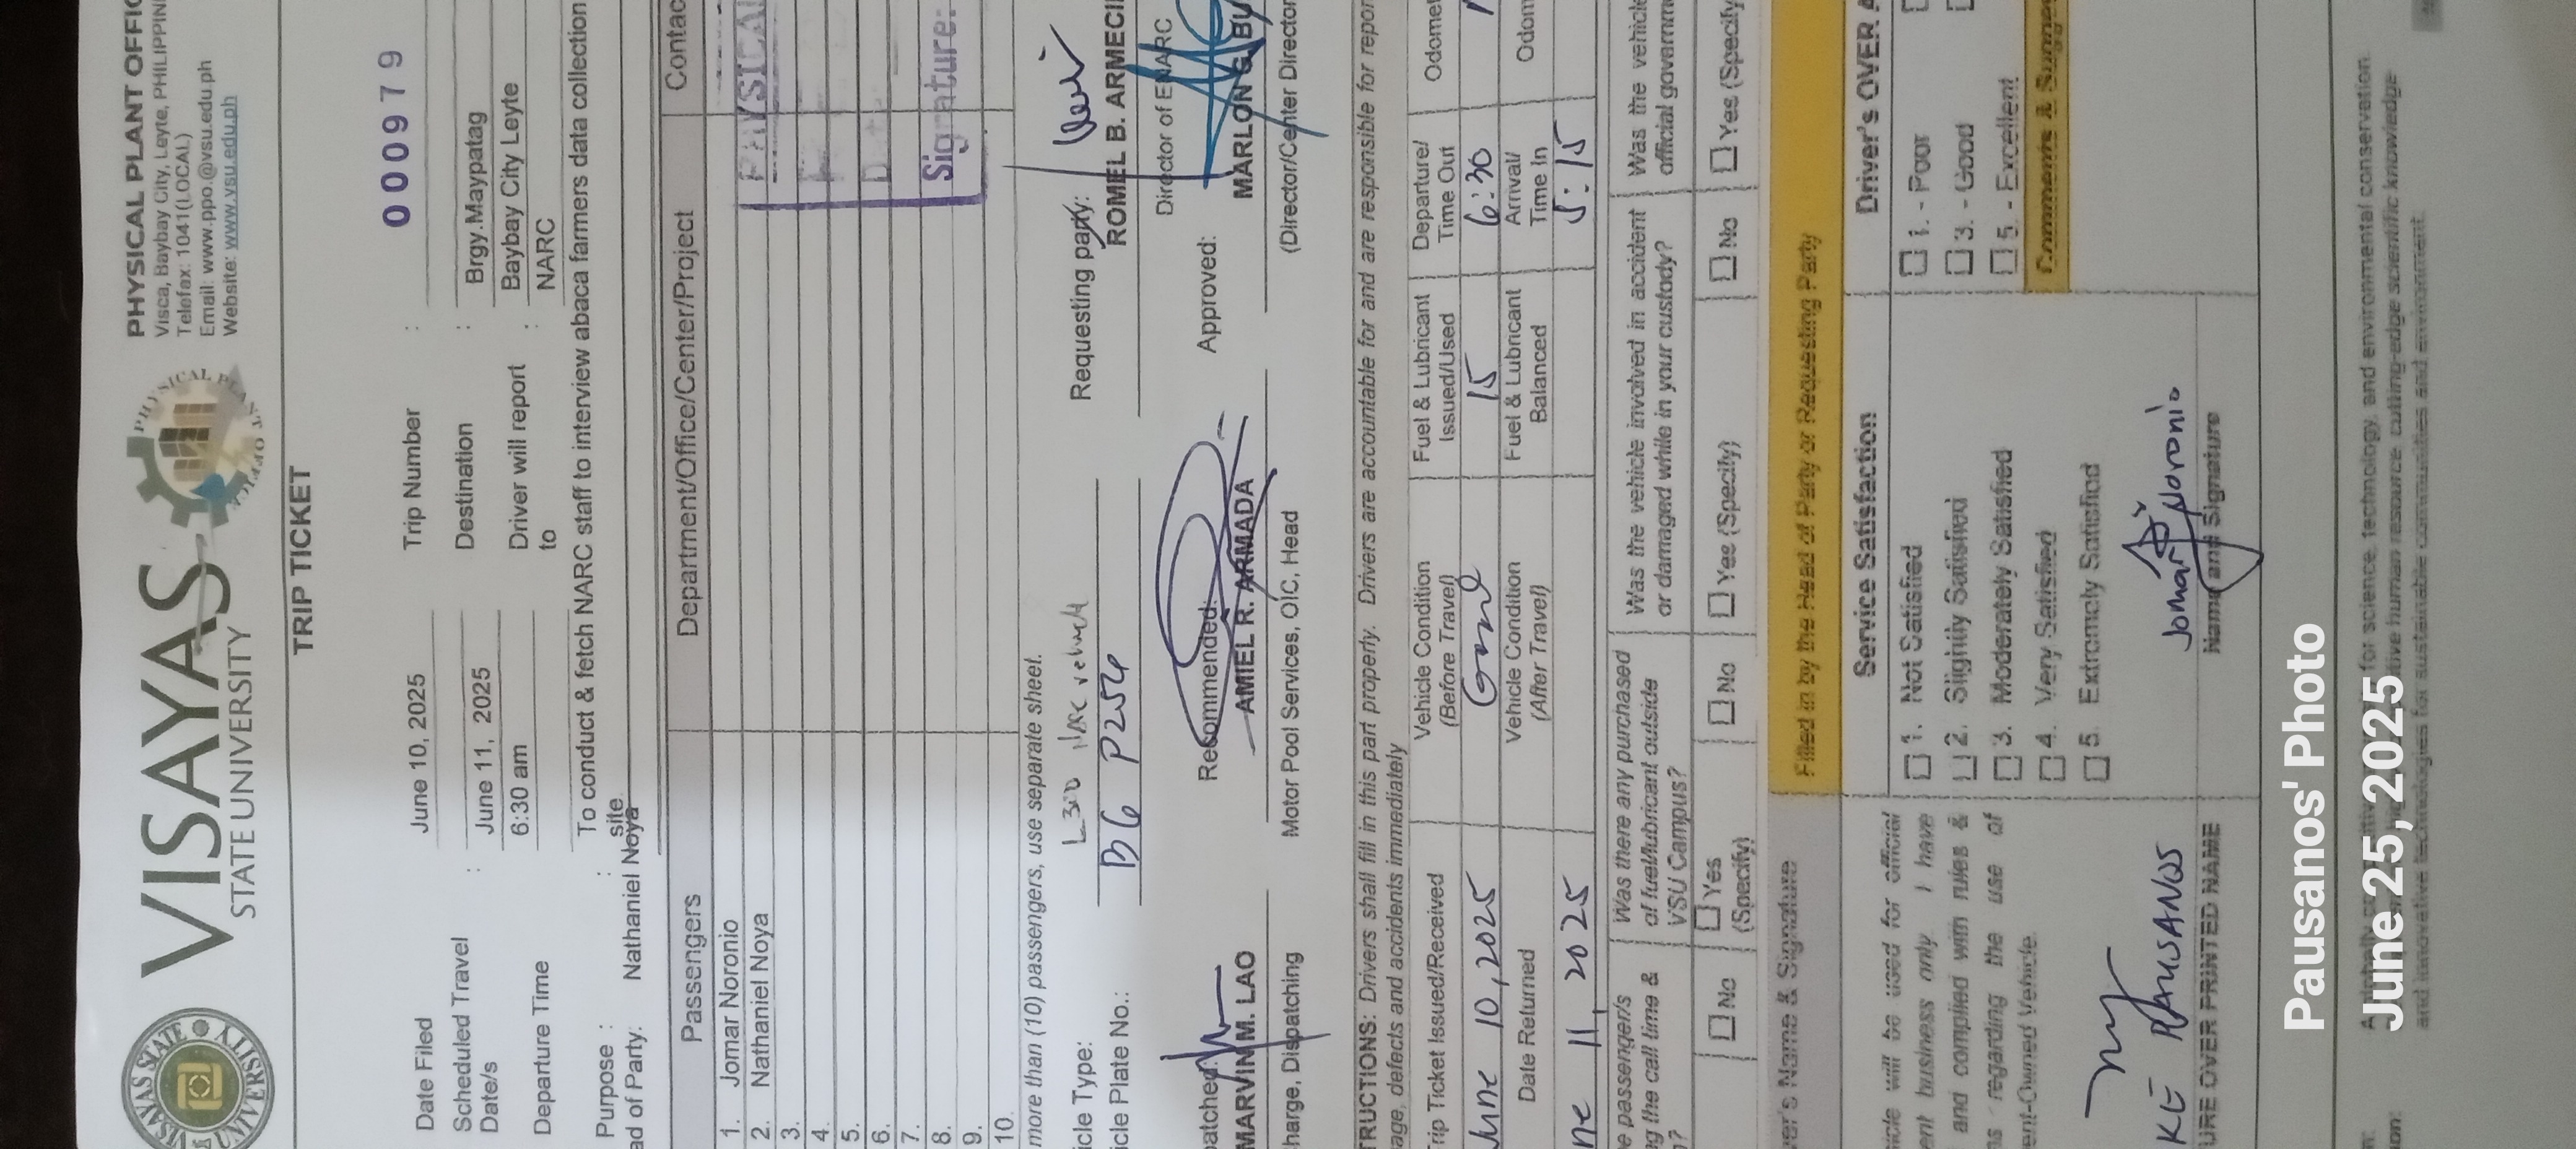 VISAYAS
STATE UNIVERSITY
PHYSICAL PLANT OFFIC
Visca, Baybay City, Leyte, PHILIPPIN
Telefax: 1041(LOCAL)
Email: www.ppo.@vsu.edu.ph
Website: www.vsu.edu.ph
TRIP TICKET
000979
Date Filed June 10, 2025 Trip Number :
Scheduled Travel Date/s : June 11, 2025 Destination : Brgy.Maypatag
Baybay City Leyte
Departure Time 6:30 am Driver will report to : NARC
Purpose : : To conduct & fetch NARC staff to interview abaca farmers data collection
site
ad of Party: Nathaniel Noya
Passengers Department/Office/Center/Project Contac
1. Jomar Noronio
2. Nathaniel Noya
3.
4.
5.
6.
7.
8.
9.
10.
PHYSICAL
Signature:
more than (10) passengers, use separate sheet.
icle Type: L300
icle Plate No.: B6 P254
Requesting party:
ROMEL B. ARMECI
Director of ENARC
patched: Recommended: Approved:
MARVIN M. LAO AMIEL R. ARMADA MARLON G. BU
harge, Dispatching Motor Pool Services, OIC, Head (Director/Center Director
TRUCTIONS: Drivers shall fill in this part properly. Drivers are accountable for and are responsible for repor
age, defects and accidents immediately
Trip Ticket Issued/Received Vehicle Condition (Before Travel) Fuel & Lubricant Issued/Used Departure/ Time Out Odomet
June 10, 2025 Good 15 6:30
Date Returned Vehicle Condition (After Travel) Fuel & Lubricant Balanced Arrival/ Time In Odom
ne 11, 2025 5:15
e passenger/s Was there any purchased Was the vehicle involved in accident Was the vehicle
g the call time & of fuel/lubricant outside or damaged while in your custody? official governme
VSU Campus?
No Yes (Specify) No Yes (Specify) No Yes (Specify
ver's Name & Signature Filled in by the Head of Party or Requesting Party
icle will be used for official
ent business only. I have
and complied with rules &
ns regarding the use of
ent-Owned Vehicle.
KE PAUSANOS
URE OVER PRINTED NAME
Service Satisfaction
1. Not Satisfied
2. Slightly Satisfied
3. Moderately Satisfied
4. Very Satisfied
5. Extremely Satisfied
Jomar Noronio
Name and Signature
Driver's OVER A
1. - Poor
3. - Good
5. - Excellent
Comments & Sugges
for science, technology, and environmental conservation
human resource, cutting-edge scientific knowledge
and innovative technologies for sustainable communities and environment.
Pausanos' Photo
June 25, 2025